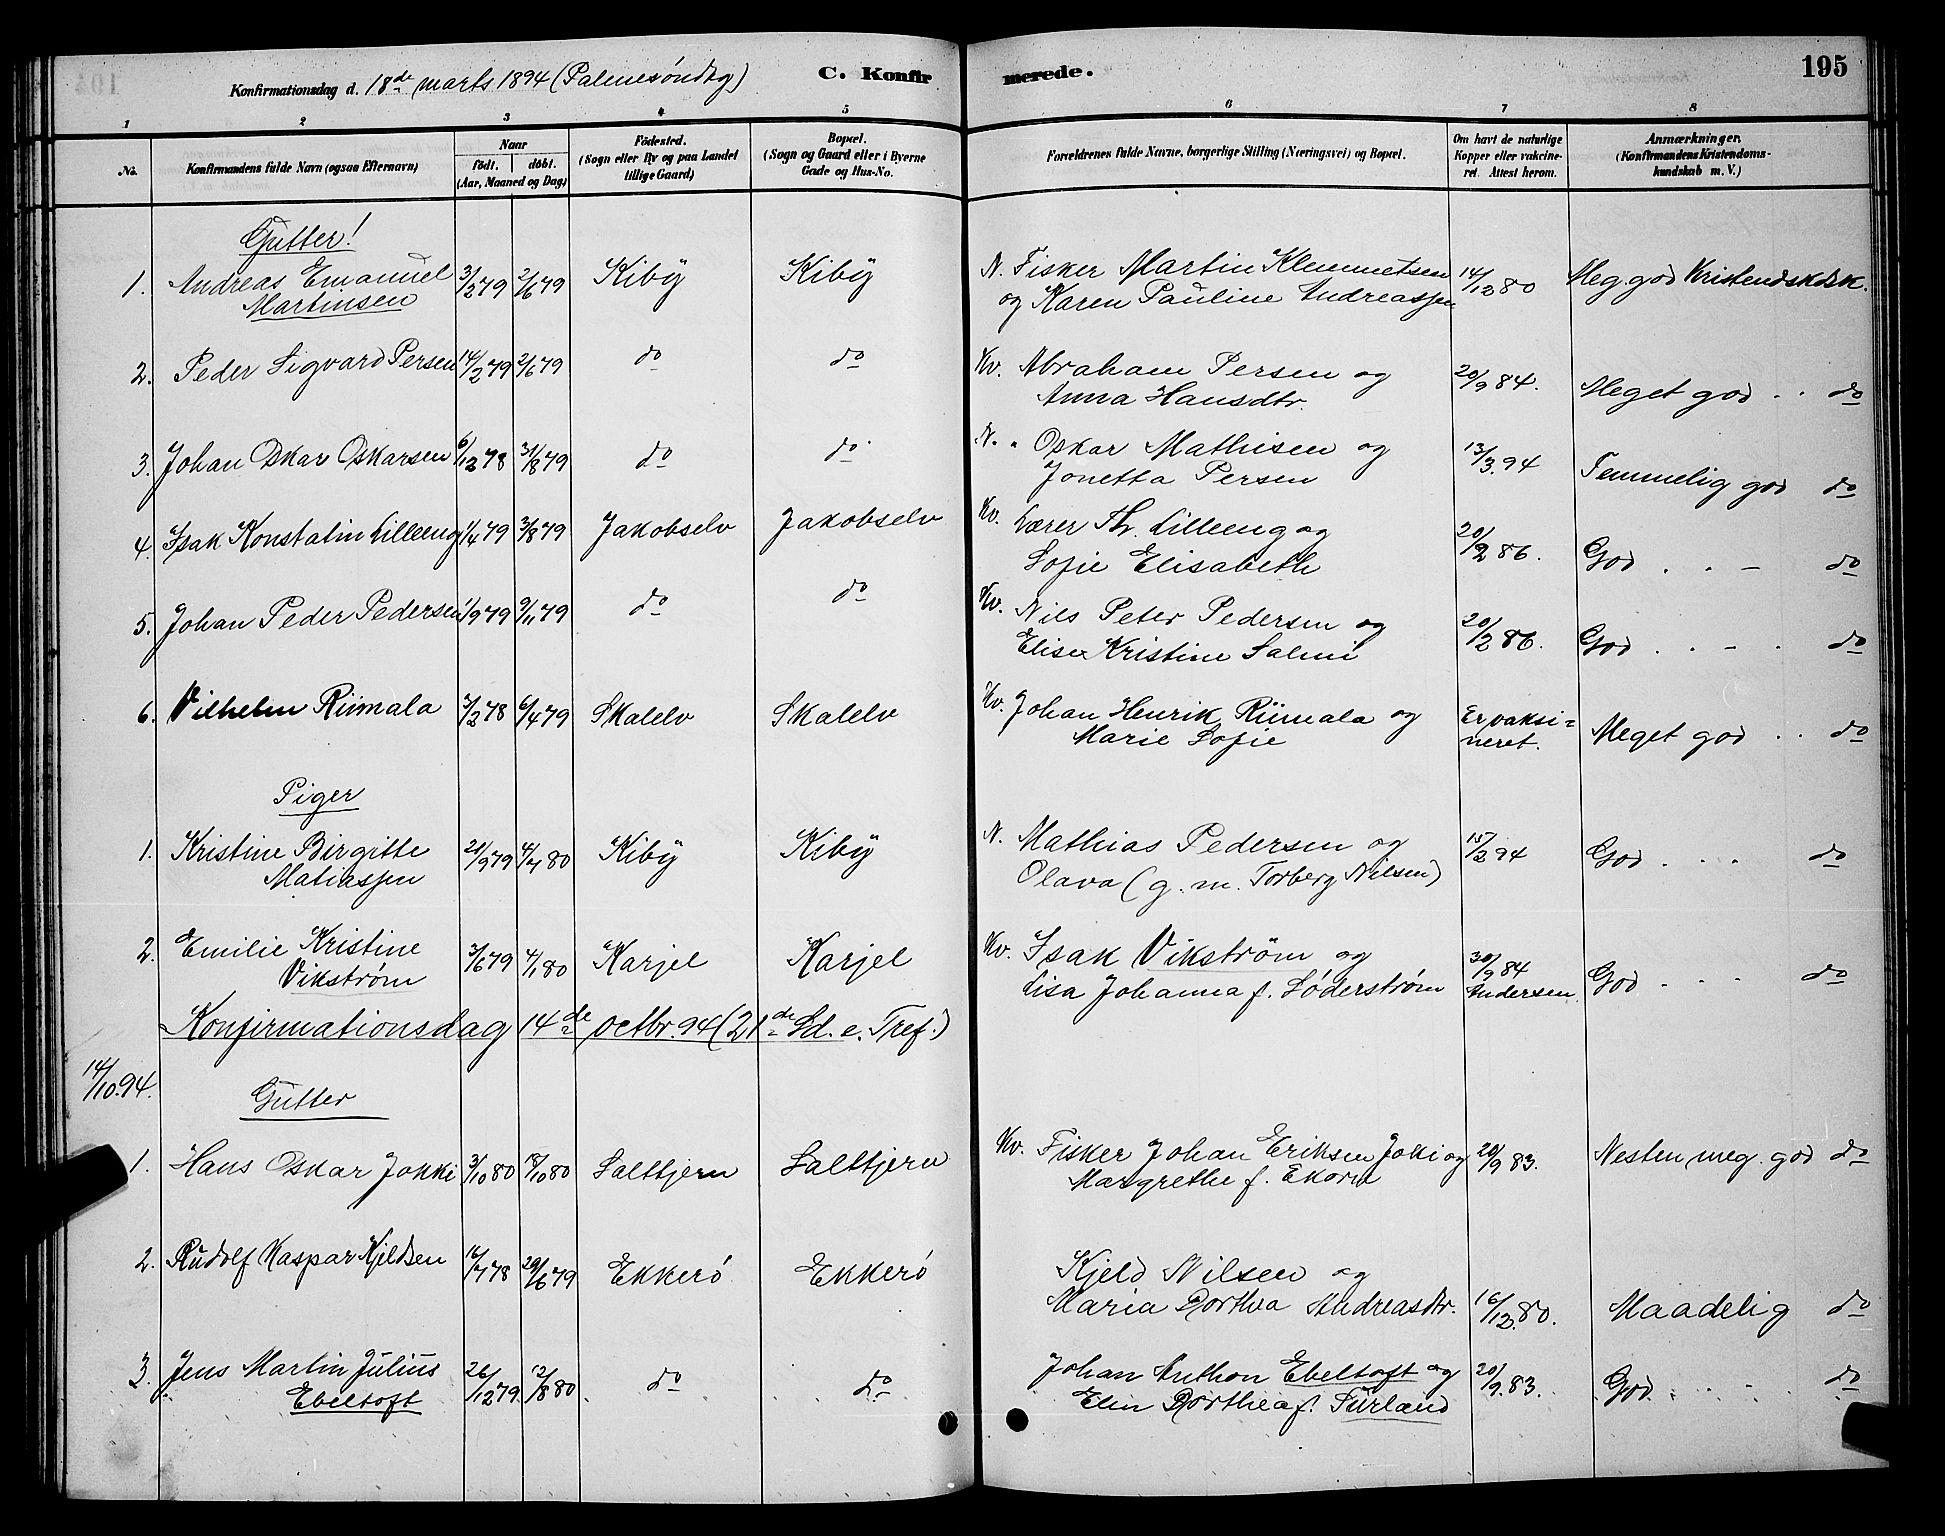 Konfirmationsdag d. 18de marts 1894 (Palmesöndag) C. Konfirmerede. 195
1 2 3 4 5 6 7 8
No.
Konfirmandens fulde Navn (ogsaa Efternavn)
Naar
födt. döbt.
(Aar, Maaned og Dag)
Födested.
(Sogn eller By og paa Landet
tillige Gaard)
Bopæl.
(Sogn og Gaard eller i Byerne
Gade og Hus-No.
Forældrenes fulde Navne, borgerlige Stilling (Næringsvei) og Bopæl.
Om havt de naturlige
Kopper eller vakcine-
ret. Attest herom.
Anmærkninger.
(Konfirmandens Kristendoms-
kundskab m. V.)
Gutter!
1. Andreas Emanuel 3/2 79 2/6 79 Kiby Kiby N. Fisker Martin Klemmetsen 14/12 80 Meg. god Kristendskdsk.
Martinsen og Karen Pauline Andreassen
2. Peder Sigvard Persen 14/2 79 2/6 79 do do Kv. Abraham Persen og 20/9 84. Meget god . . do
Anna Hansdtr.
3. Johan Oskar Oskarsen 6/12 78 31/8 79 do do N. " Oskar Mathisen og 13/3. 94 Temmelig god do
Jonetta Persen
4. Isak Konstatin Lilleeng 1/4 79 3/8 79 Jakobselv Jakobselv Kv. Lærer Th. Lilleeng og 20/2 86. God . . - do
Sofie Elisabeth
5. Johan Peder Pedersen 1/9 79 9/11 79 do do Kv. Nils Peter Pedersen og 20/2 86. God . . - . do
Elise Kristine Salmi
6. Vilhelm Riimala 3/2 78 6/4 79 Skalelv Skalelv Kv. Johan Henrik Riimala og Er vaksi= Meget god . . do
Marie Sofie neret.
Piger
1. Kristine Birgitte 21/9 79 4/4 80 Kiby Kiby N. Mathias Pedersen og 15/2 94 God . . . do
Matiassen Olava (g. m. Torberg Nilsen)
2. Emilie Kristine 3/6 79 4/1 80 Karjel Karjel Kv. Isak Vikström og 30/9 84 God . . . do
Vikström Lisa Johanna f. Söderström Andersen
Konfirmationsdag 14de octbr. 94 (21de Sd. e. Tref.)
14/10.94.
Gutter
1. Hans Oskar Jokki 3/10 80 18/10 80 Salttjern Salttjern Kv. Fisker Johan Eriksen Joki og 20/9 83. Nesten meg. god do
Margrethe f. Ekorn
2. Rudolf Kaspar Kjeldsen 16/7 78 29/6 79 Ekkerö Ekkerö Kjeld Nilsen og
Maria Dorthea Andreasdtr. 16/12. 80. Maadelig do
3. Jens Martin Julius 26/12 79 12/8 80 do do Johan Anthon Ebeltoft og 20/9. 83. God . . . . do
Ebeltoft Elen Dorthea f. Furland